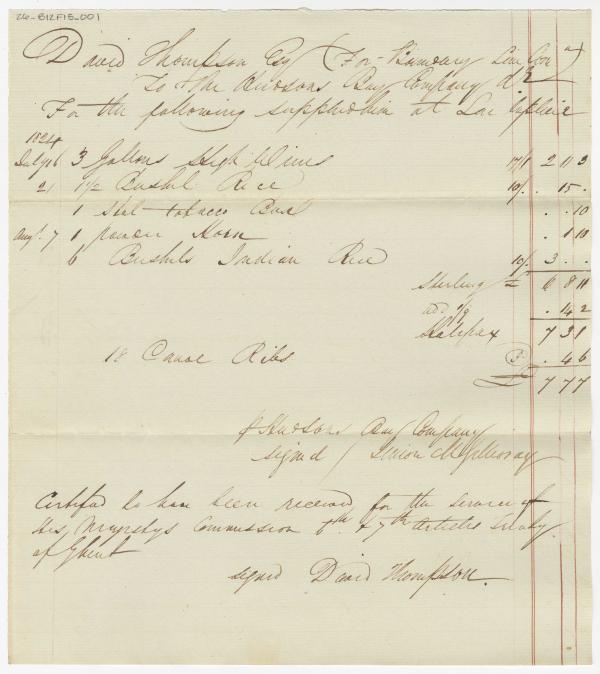 26-B12F15-001
David Thompson Esq (For Boundary Line Comn)
To the Hudsons Bay Company Dr
For the following supplied him at Lac la pluie
1824
July 16 3 Gallons High Wines 17/1 2 11 3
21 1 1/2 Bushl Rice 10/. . 15 .
1 Tobacco Box . . 10
Augt. 7 1 powder Horn . 1 10
6 Bushels Indian Rice 10/. 3 . .
Sterling £ 6 8 11
add 1/9 . 14 2
Halifax 7 3 1
18 Canoe Ribs 3 . 4 6
£ 7 7 7
p Hudsons Bay Company
signed / Simon McGillivray
Certified to have been received for the service of
His Majestys Commission 6th & 7th articles Treaty
of Ghent
signed David Thompson.